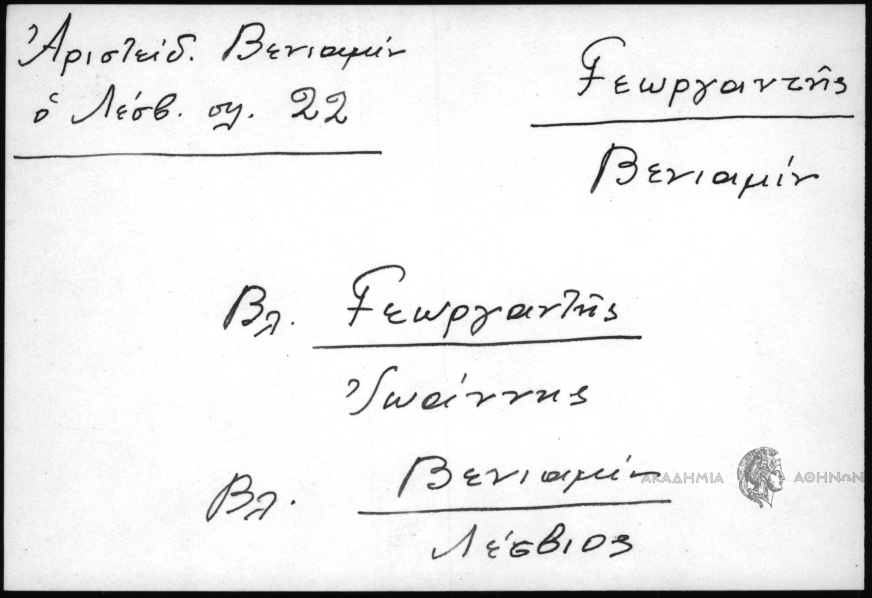 Ἀριστείδ. Βενιαμίν
ὁ Λέσβ. σγ. 22
Γεωργαντῆς
Βενιαμίν
Βλ. Γεωργαντῆς
Ἰωάννης
Βλ. Βενιαμίν
Λέσβιος
ΑΚΑΔΗΜΙΑ ΑΘΗΝΩΝ